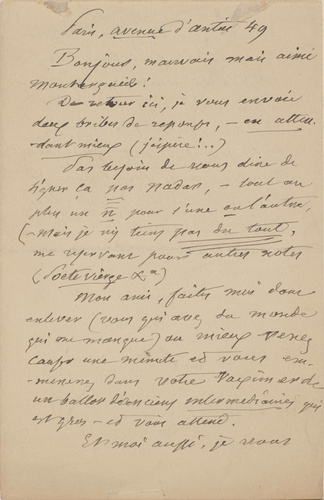 Paris, avenue d'Antin 49
Bonjour, mauvais mais aimé
De retour ici, je vous envoie
deux bribes de réponse, – en atten-
dant mieux (j'espère!..)
Pas besoin de vous dire de
signer ça pas Nadar, – tout au
plus un n pour l'une ou l'autre,
(– Mais je n'y tiens pas du tout,
me réservant pour autres notes
(Porte vierge &a)
Mon ami, faites moi donc
enlever (vous qui avez du monde
qui me manque) ou mieux venez
une minute et vous em-
mènerez dans votre
un ballot d'anciens intermédiaires qui
est gros – et vous attend.
Et moi aussi, je vous